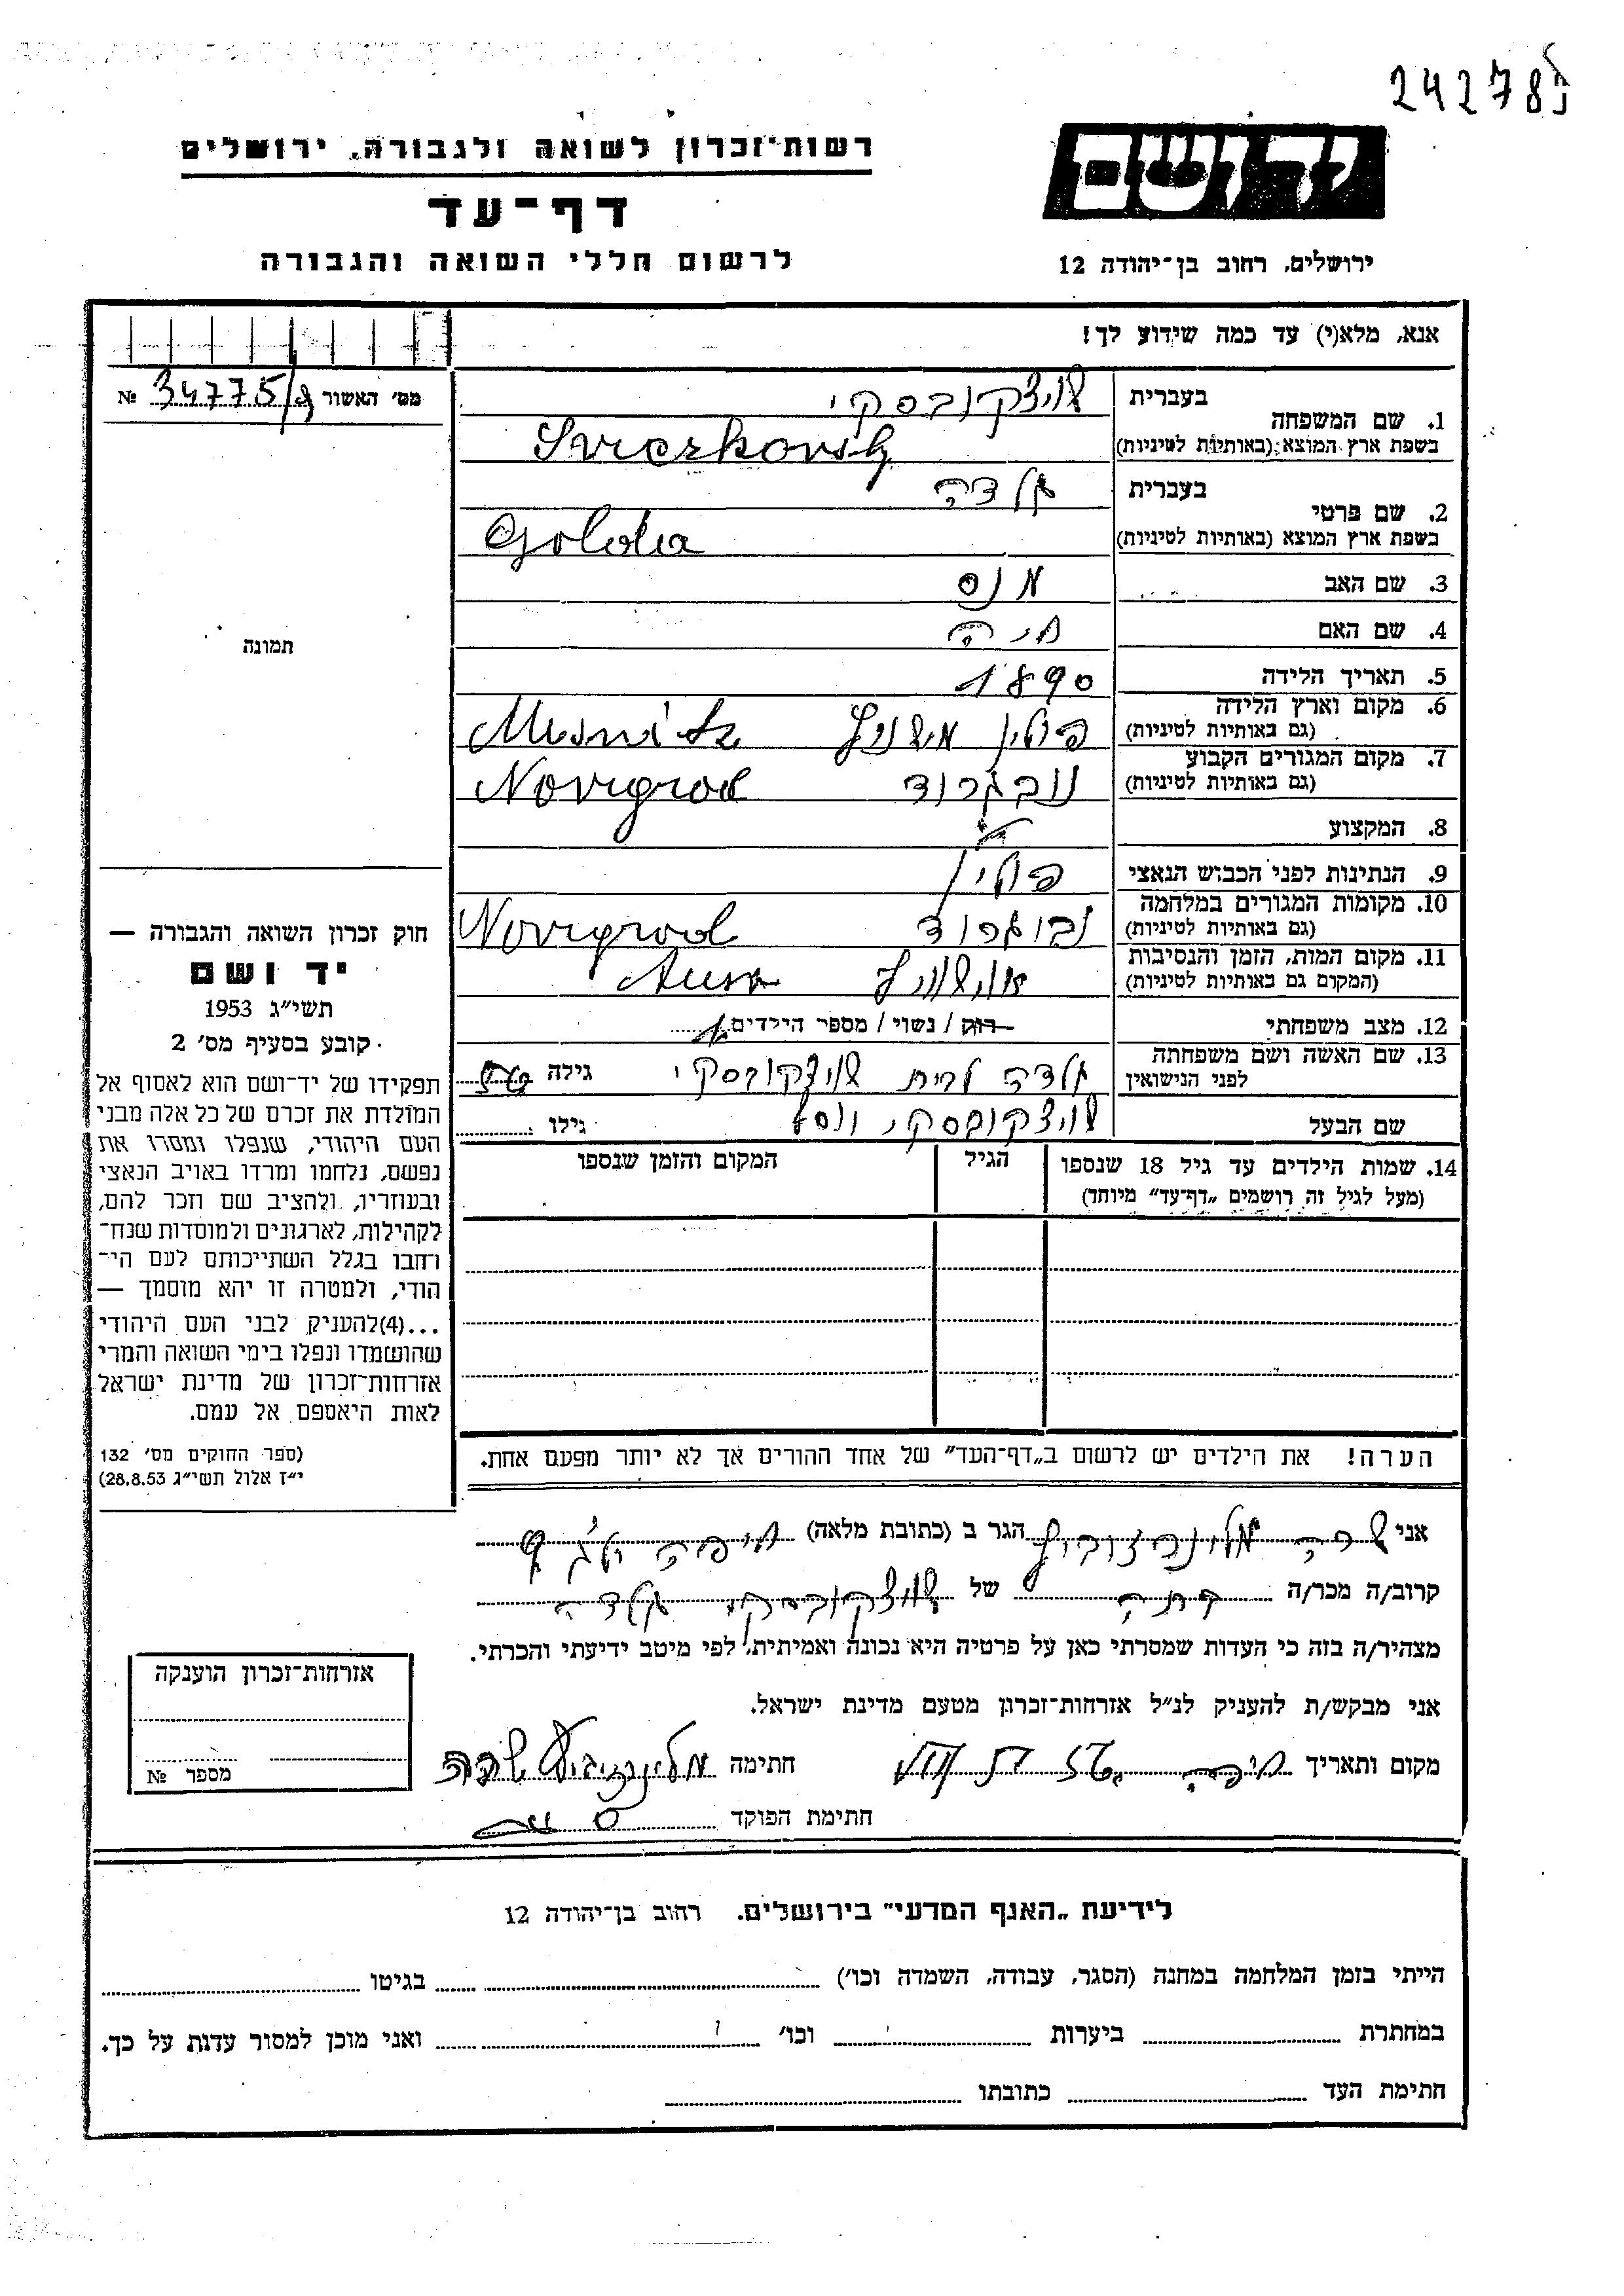 242783
רשות־זכרון לשואה ולגבורה, ירושלים
יד ושם
דף־עד
לרשום חללי השואה והגבורה
ירושלים, רחוב בן־יהודה 12
אנא, מלא(י) עד כמה שידוע לך!
מס׳ האשור 34775/ №
1. שם המשפחה
בעברית שויצקובסקי
בשפת ארץ המוצא (באותיות לטיניות)
2. שם פרטי
בעברית גולדה
בשפת ארץ המוצא (באותיות לטיניות) Golda
3. שם האב מנס
4. שם האם חיה
5. תאריך הלידה 1890
6. מקום וארץ הלידה
(גם באותיות לטיניות) פולין
7. מקום המגורים הקבוע
(גם באותיות לטיניות) נובגרוד Novigrod
8. המקצוע
9. הנתינות לפני הכבוש הנאצי פולין
10. מקומות המגורים במלחמה
(גם באותיות לטיניות) נבוגרוד Novigrod
11. מקום המות, הזמן והנסיבות
(המקום גם באותיות לטיניות) אושויץ
12. מצב משפחתי רוק / נשוי / מספר הילדים
13. שם האשה ושם משפחתה
לפני הנישואין גולדה לבית שויצקובסקי גילה
שם הבעל שויצקובסקי גילו
14. שמות הילדים עד גיל 18 שנספו
(מעל לגיל זה רושמים „דף־עד״ מיוחד)
הגיל
המקום והזמן שנספו
הערה! את הילדים יש לרשום ב„דף־העד״ של אחד ההורים אך לא יותר מפעם אחת.
תמונה
חוק זכרון השואה והגבורה —
יד ושם
תשי״ג 1953
קובע בסעיף מס׳ 2
תפקידו של יד־ושם הוא לאסוף אל
המולדת את זכרם של כל אלה מבני
העם היהודי, שנפלו ומסרו את
נפשם, נלחמו ומרדו באויב הנאצי
ובעוזריו, ולהציב שם וזכר להם,
לקהילות, לארגונים ולמוסדות שנח־
רחבו בגלל השתייכותם לעם הי־
הודי, ולמטרה זו יהא מוסמך —
...(4)להעניק לבני העם היהודי
שהושמדו ונפלו בימי השואה והמרי
אזרחות־זכרון של מדינת ישראל
לאות היאספם אל עמם.
(ספר החוקים מס׳ 132
י״ז אלול תשי״ג 28.8.53)
אני שרה הגר ב (כתובת מלאה) חיפה
קרוב/ה מכר/ה בתה של שויצקובסקי גולדה
מצהיר/ה בזה כי העדות שמסרתי כאן על פרטיה היא נכונה ואמיתית, לפי מיטב ידיעתי והכרתי.
אני מבקש/ת להעניק לנ״ל אזרחות־זכרון מטעם מדינת ישראל.
מקום ותאריך חיפה חתימה שרה
חתימת הפוקד
אזרחות־זכרון הוענקה
מספר №
לידיעת „האגף המדעי״ בירושלים. רחוב בן־יהודה 12
הייתי בזמן המלחמה במחנה (הסגר, עבודה, השמדה וכו׳) בגיטו
במחתרת ביערות וכו׳ ואני מוכן למסור עדות על כך.
חתימת העד כתובתו